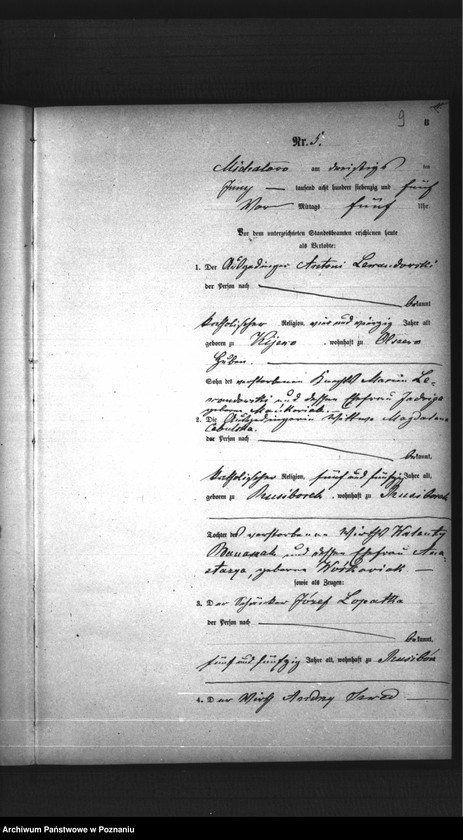 9
8
Nr. 5.
Michalowo am dreißigs ten
Juny — tausend acht hundert siebenzig und fünf
Vor Mittags fünf Uhr.
Vor dem unterzeichneten Standesbeamten erschienen heute
als Verlobte:
1. Der Antoni Lewandowski
der Person nach
bekannt
katholischer Religion, vier und vierzig Jahre alt
geboren zu Kijewo, wohnhaft zu
Sohn des verstorbenen Marcin Le-
wandowski und dessen Ehefrau Jadwiga
geborene
2. Die Wittwe Magdalena
Cebulska.
der Person nach
bekannt,
katholischer Religion, fünf und fünfzig Jahre alt,
geboren zu Rusiborek, wohnhaft zu Rusiborek
Tochter des verstorbenen Wirth Walenty
und dessen Ehefrau Ana-
stazya, geborene —
sowie als Zeugen:
3. Der Józef Lopatka
der Person nach
bekannt,
fünf und fünfzig Jahre alt, wohnhaft zu
4. Der Wirth Andrzy
Archiwum Państwowe w Poznaniu